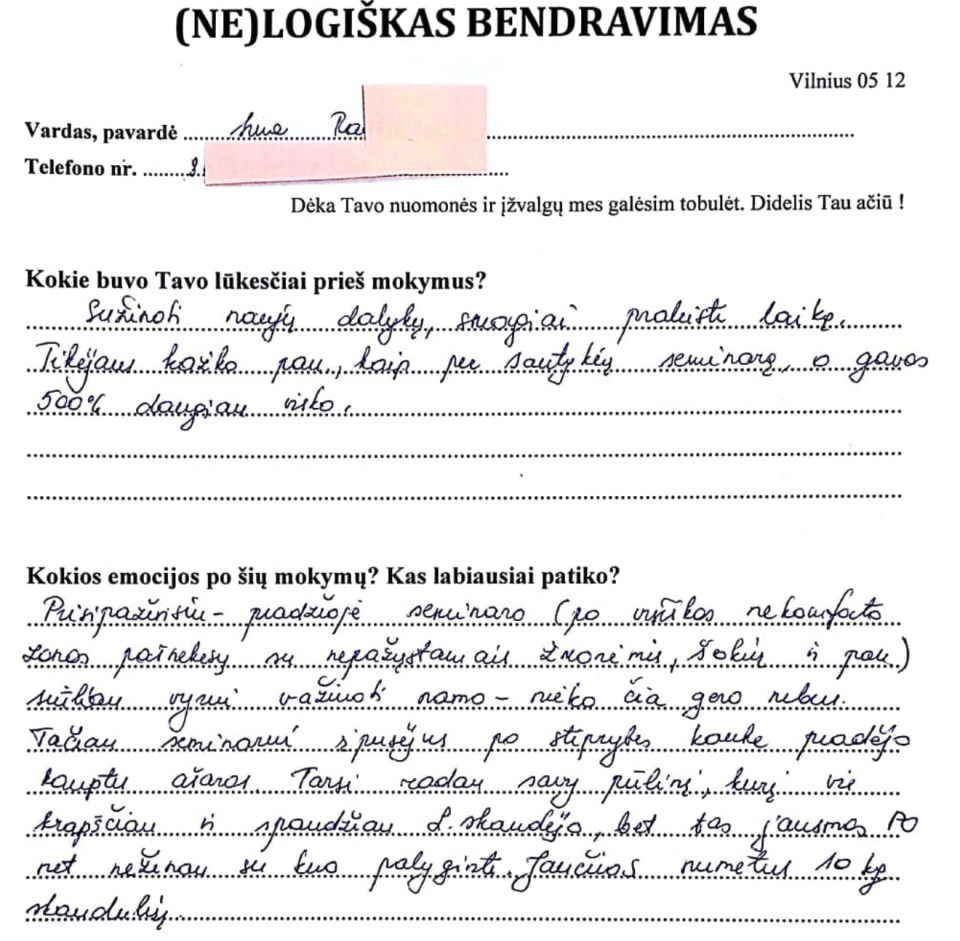 (NE)LOGIŠKAS BENDRAVIMAS
Vilnius 05 12
Vardas, pavardė Ra
Telefono nr.
Dėka Tavo nuomonės ir įžvalgų mes galėsim tobulėt. Didelis Tau ačiū !
Kokie buvo Tavo lūkesčiai prieš mokymus?
Sužinoti naujų dalykų, smagiai praleisti laiką.
Tikėjaus kažko pan., kaip per santykių seminarą, o gavos
500% daugiau visko.
Kokios emocijos po šių mokymų? Kas labiausiai patiko?
Prisipažinsiu – pradžioje seminaro (po visiškos nekomforto
zonos pašnekesių su nepažįstamais žmonėmis, šokių ir pan.)
vyrui važiuoti namo – nieko čia gero nebus.
Tačiau seminarui įpusėjus po stiprybės kauke pradėjo
kauptis ašaros. Tarsi radau savy pūlinį, kurį vis
krapščiau ir spaudžiau skaudėjo, bet tas jausmas PO
net nežinau su kuo palyginti. Jaučiuos numetus 10 kg
skaudulių.